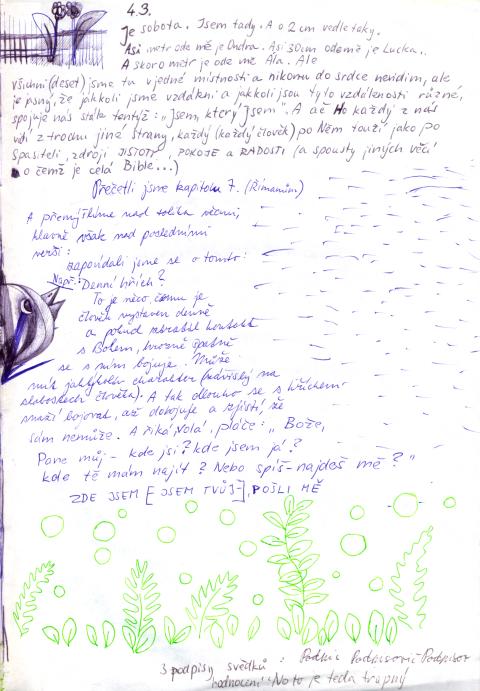 4.3.
Je sobota. Jsem tady. A o 2cm vedle taky.
Asi metr ode mě je Ondra. Asi 30cm ode mě je Lucka..
A skoro metr je ode mě Ala. Ale
všichni (deset) jsme tu v jedné místnosti a nikomu do srdce nevidím, ale
je jasný, že jakkoli jsme vzdálení a jakkoli jsou tyto vzdálenosti různé,
spojuje nás stále tentýž: „Jsem, který jsem". A ač Ho každý z nás
vidí z trochu jiné strany, každý (každý člověk) po Něm touží jako po
Spasiteli, zdroji JISTOTY, POKOJE a RADOSTI (a spousty jiných věcí
o čemž je celá Bible...)
Přečetli jsme kapitolu 7. (Římanům)
A přemýšlíme nad tolika věcmi,
hlavně však nad posledními
verši:
zapovídali jsme se o tomto:
Např.: Denní hřích?
To je něco, čemu je
člověk vystaven denně
a pokud neztratil kontakt
s Bohem, hrozně špatně
se s ním bojuje. Může
mít jakýkoliv charakter (závislý na
slabostech člověka). A tak dlouho se s hříchem
snaží bojovat, až dobojuje a zjistí, že
sám nemůže. A říká, volá, pláče: „Bože,
Pane můj - kde jsi? kde jsem já?
kde tě mám najít? Nebo spíš - najdeš mě?"
ZDE JSEM [JSEM TVŮJ-], POŠLI MĚ
3 podpisy svědků: Podpis Podpisovič Podpisov
hodnocení: No to je teda trapný